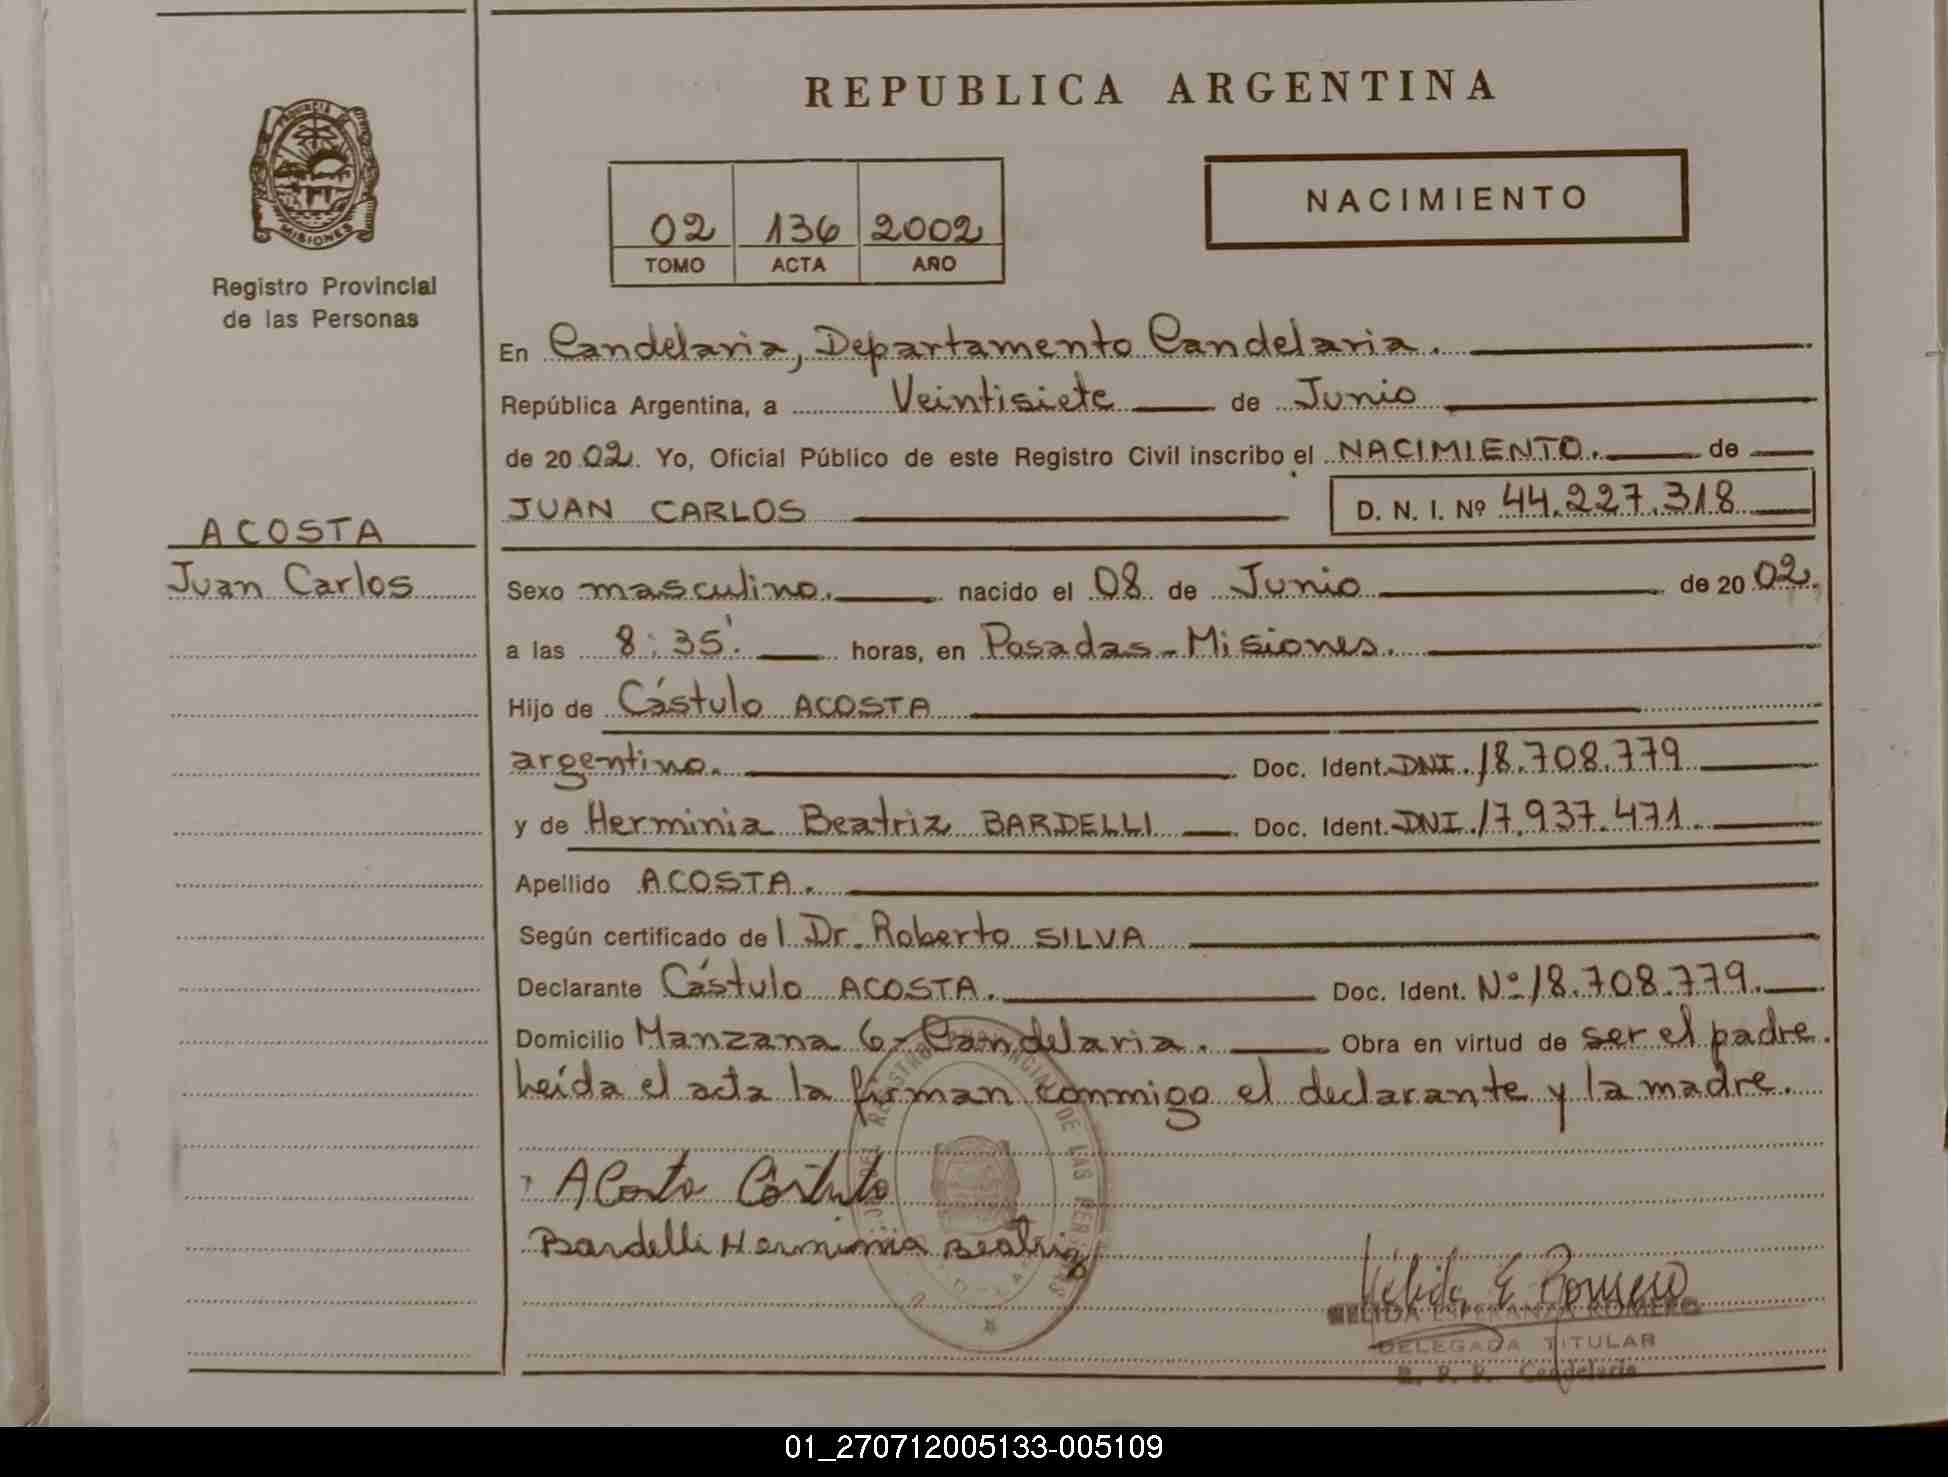 REPUBLICA ARGENTINA
PROVINCIA DE
MISIONES
Registro Provincial
de las Personas
ACOSTA
Juan Carlos
02 136 2002
TOMO ACTA AÑO
NACIMIENTO
En Candelaria, Departamento Candelaria.
República Argentina, a Veintisiete de Junio
de 2002. Yo, Oficial Público de este Registro Civil inscribo el NACIMIENTO. de
JUAN CARLOS D. N. I. Nº 44.227.318
Sexo masculino. nacido el 08 de Junio de 2002.
a las 8:35'. horas, en Posadas-Misiones.
Hijo de Cástulo ACOSTA
argentino. Doc. Ident. DNI. 18.708.779
y de Herminia Beatriz BARDELLI Doc. Ident. DNI. 17.937.471.
Apellido ACOSTA.
Según certificado del Dr. Roberto SILVA
Declarante Cástulo ACOSTA. Doc. Ident. Nº 18.708.779.
Domicilio Manzana 6- Candelaria. Obra en virtud de ser el padre.
Leída el acta la firman conmigo el declarante y la madre.
Acosta Cástulo
Bardelli Herminia Beatriz
REGISTRO PROVINCIAL DE LAS PERSONAS
Nélida E Romero
NELIDA ESPERANZA ROMERO
DELEGADA TITULAR
R. P. P. Candelaria
01_270712005133-005109